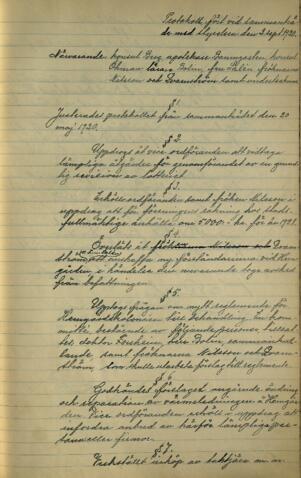 Protokoll, fört vid sammanträ-
de med styrelsen den 3 sept. 1920.
Närvarande: konsul Berg, apotekare Baumgarten, konsul
Öhman, Holm, fru Thelin, fröknarna
Nilsson och Svanström samt undertecknad.
§ 1.
Justerades protokollet från sammanträdet den 20
maj 1920.
§ 2.
Uppdrogs åt vice ordföranden att vidtaga
lämpliga åtgärder för genomförandet av en grund-
lig revision av
§ 3.
Erhöll ordföranden samt fröken Nilsson i
uppdrag att för föreningens räkning hos stads-
fullmäktige anhålla om 5000:- kr. för år 1921.
§ 4.
Överläts åt fröknarna Nilsson och Svan-
ström att anskaffa ny föreståndarinna vid Hem-
gården, i händelse den nuvarande toge avsked
från befattningen.
§ 5.
Upptogs frågan om nytt reglemente för
till behandling. En kom-
mitté, bestående av följande personer, tillsat-
tes: doktor Forsheim, Holm, sammankal-
lande, samt fröknarna Nilsson och Svan-
ström, som skulle utarbeta förslag till reglemente.
§ 6.
Godkändes förslaget angående ändring
och reparation av värmeledningen i Hemgår-
den. Vice ordföranden erhöll i uppdrag att
infordra anbud av härför lämpliga per-
soner eller firmor.
§ 7.
Fastställdes inköp av